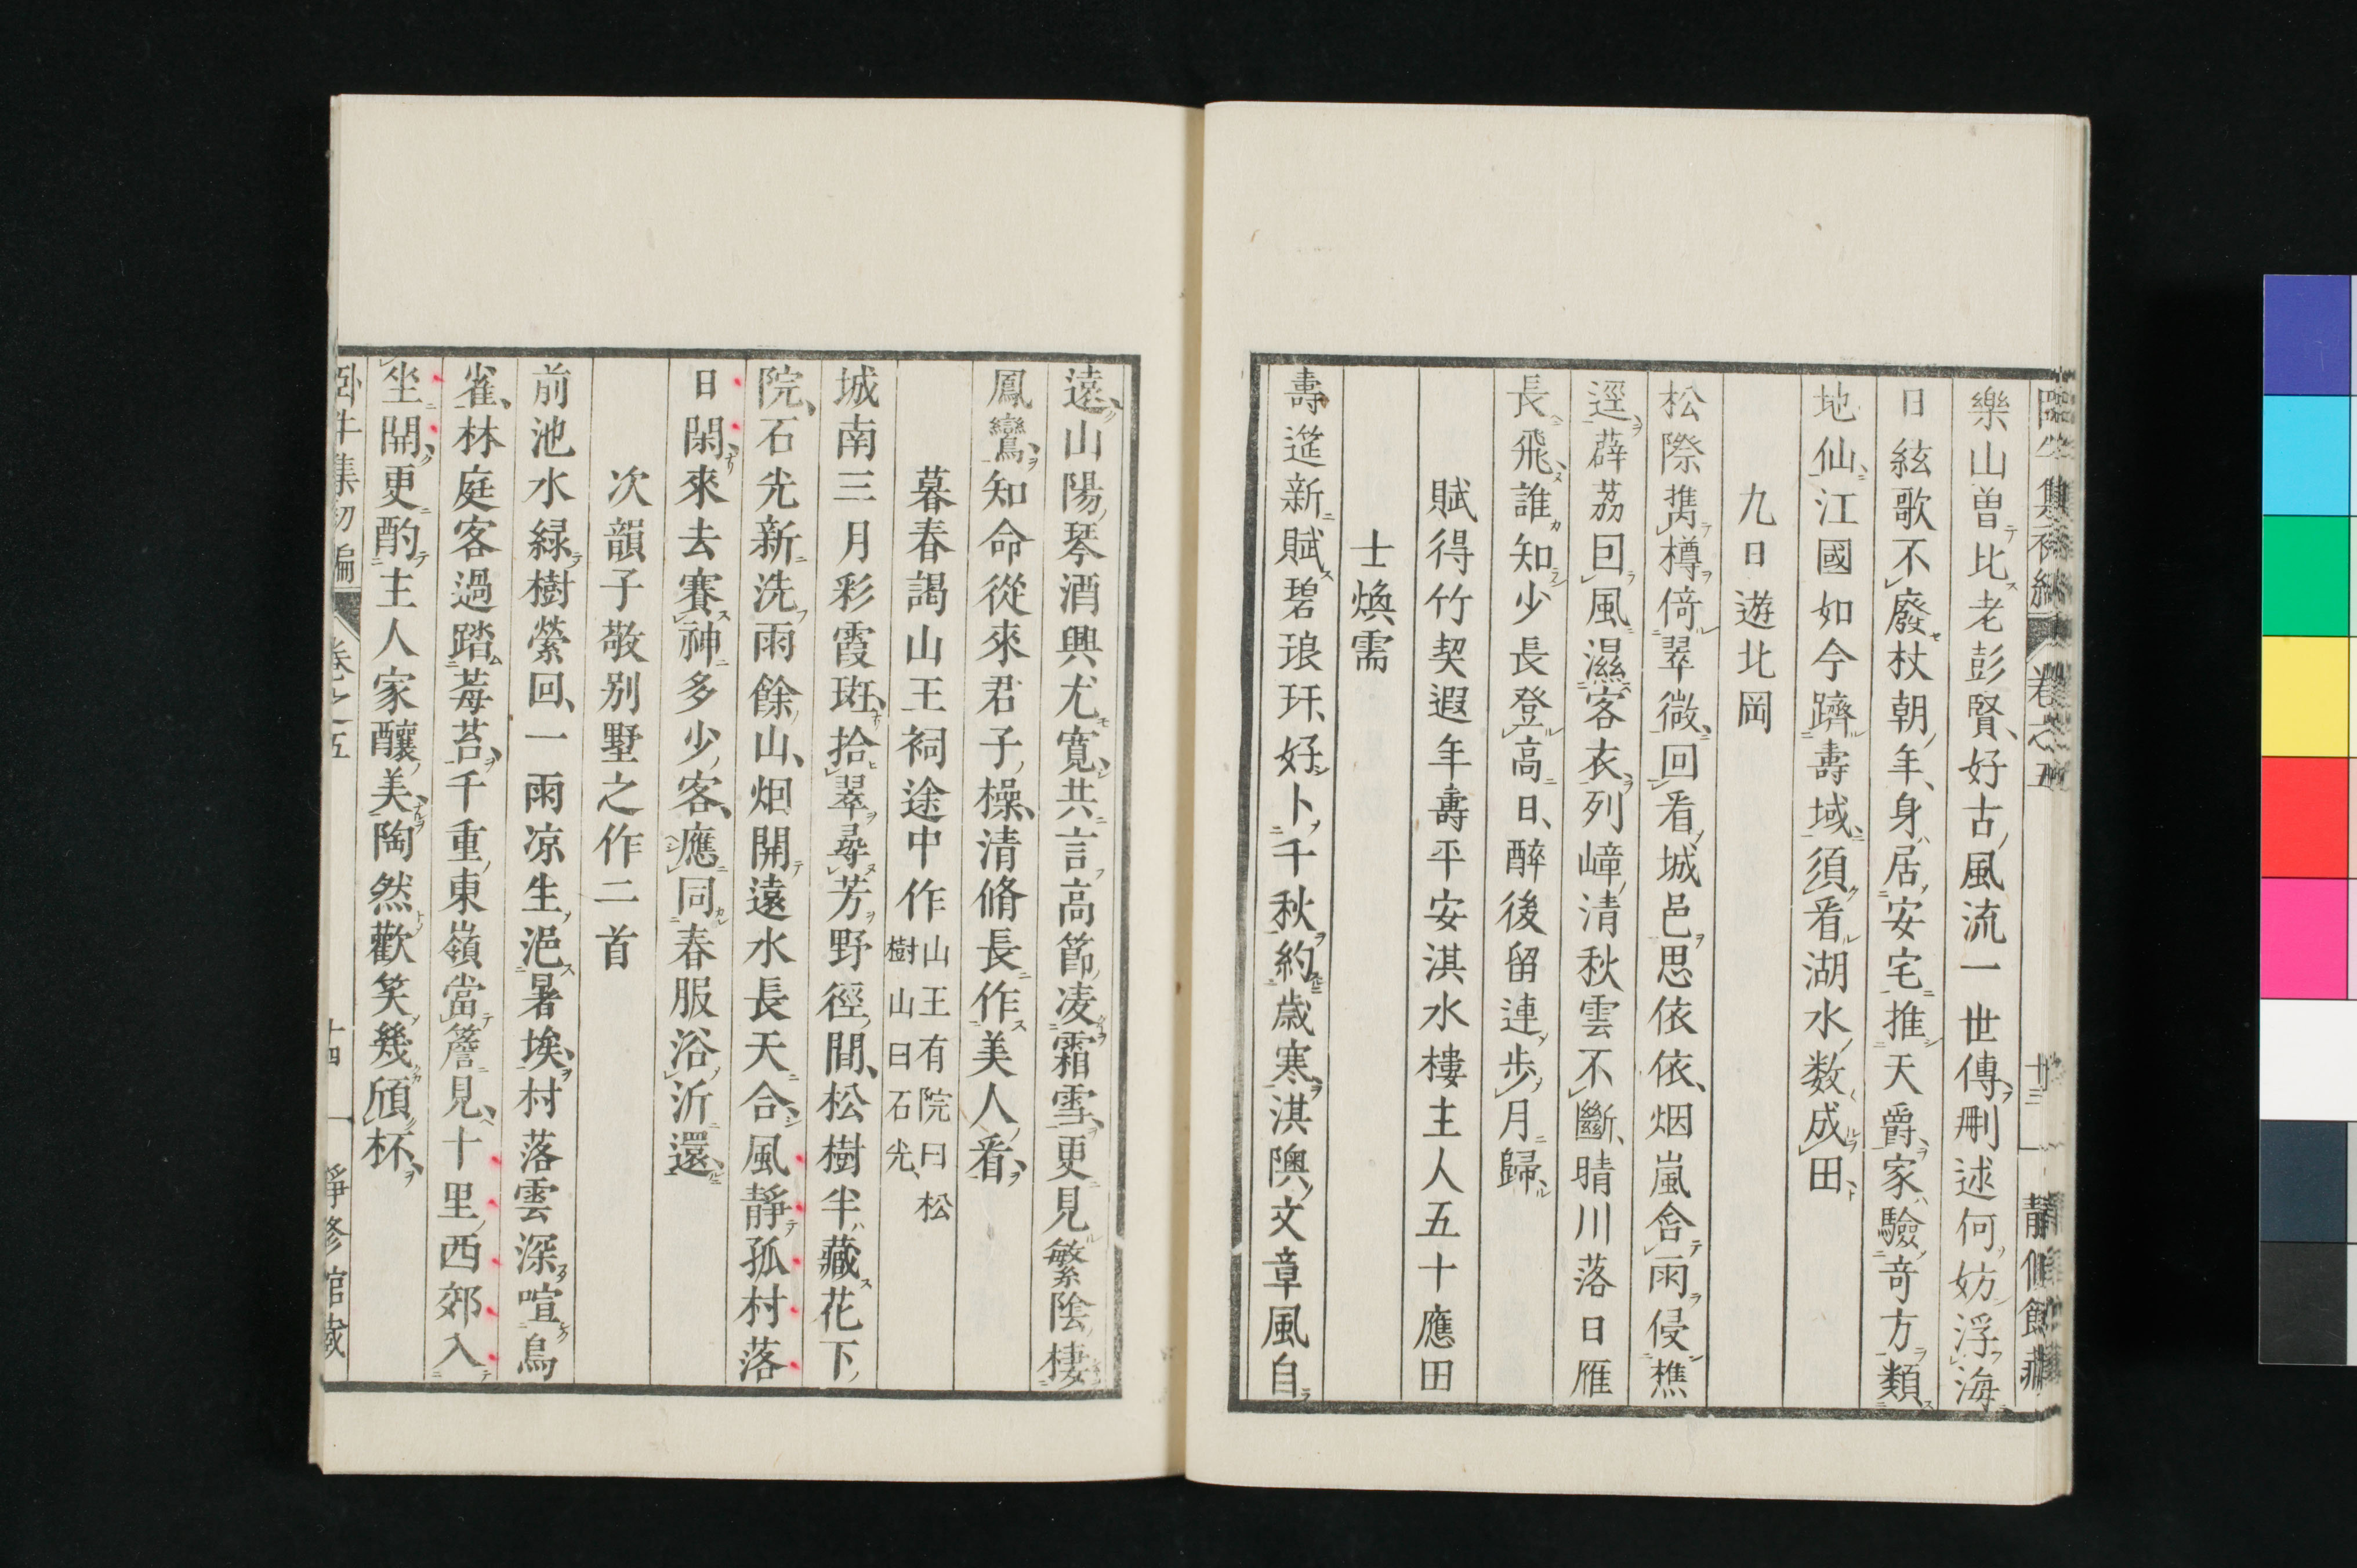 樂山曽比老彭賢好古風流一世傳刪述何妨浮海
日絃歌不廢杖朝年身居安宅推天爵家驗奇方類
地仙江國如今躋壽域須看湖水数成田
九日遊北岡
松際攜樽倚翠微回看城邑思依依烟嵐含雨侵樵
逕薜荔回風濕客衣列嶂清秋雲不斷晴川落日雁
長飛誰知少長登高日醉後留連步月歸
賦得竹契遐年壽平安淇水樓主人五十應田
士煥需
壽筵新賦碧琅玕好卜千秋約歳寒淇隩文章風自
遠山陽琴酒興尤寛共言高節凌霜雪更見繁陰棲
鳳鸞知命從來君子操清脩長作美人看
暮春謁山王祠途中作山王有院曰松
樹山曰石光
城南三月彩霞斑拾翠尋芳野徑間松樹半藏花下
院石光新洗雨餘山烟開遠水長天合風靜孤村落
日閑來去賽神多少客應同春服浴沂還
次韻子敬別墅之作二首
前池水緑樹縈回一雨凉生浥暑埃村落雲深喧鳥
雀林庭客過踏莓苔千重東嶺當簷見十里西郊入
坐開更酌主人家釀美陶然歡笑幾頎杯
卧牛集初編 卷之五 十四 靜修館藏